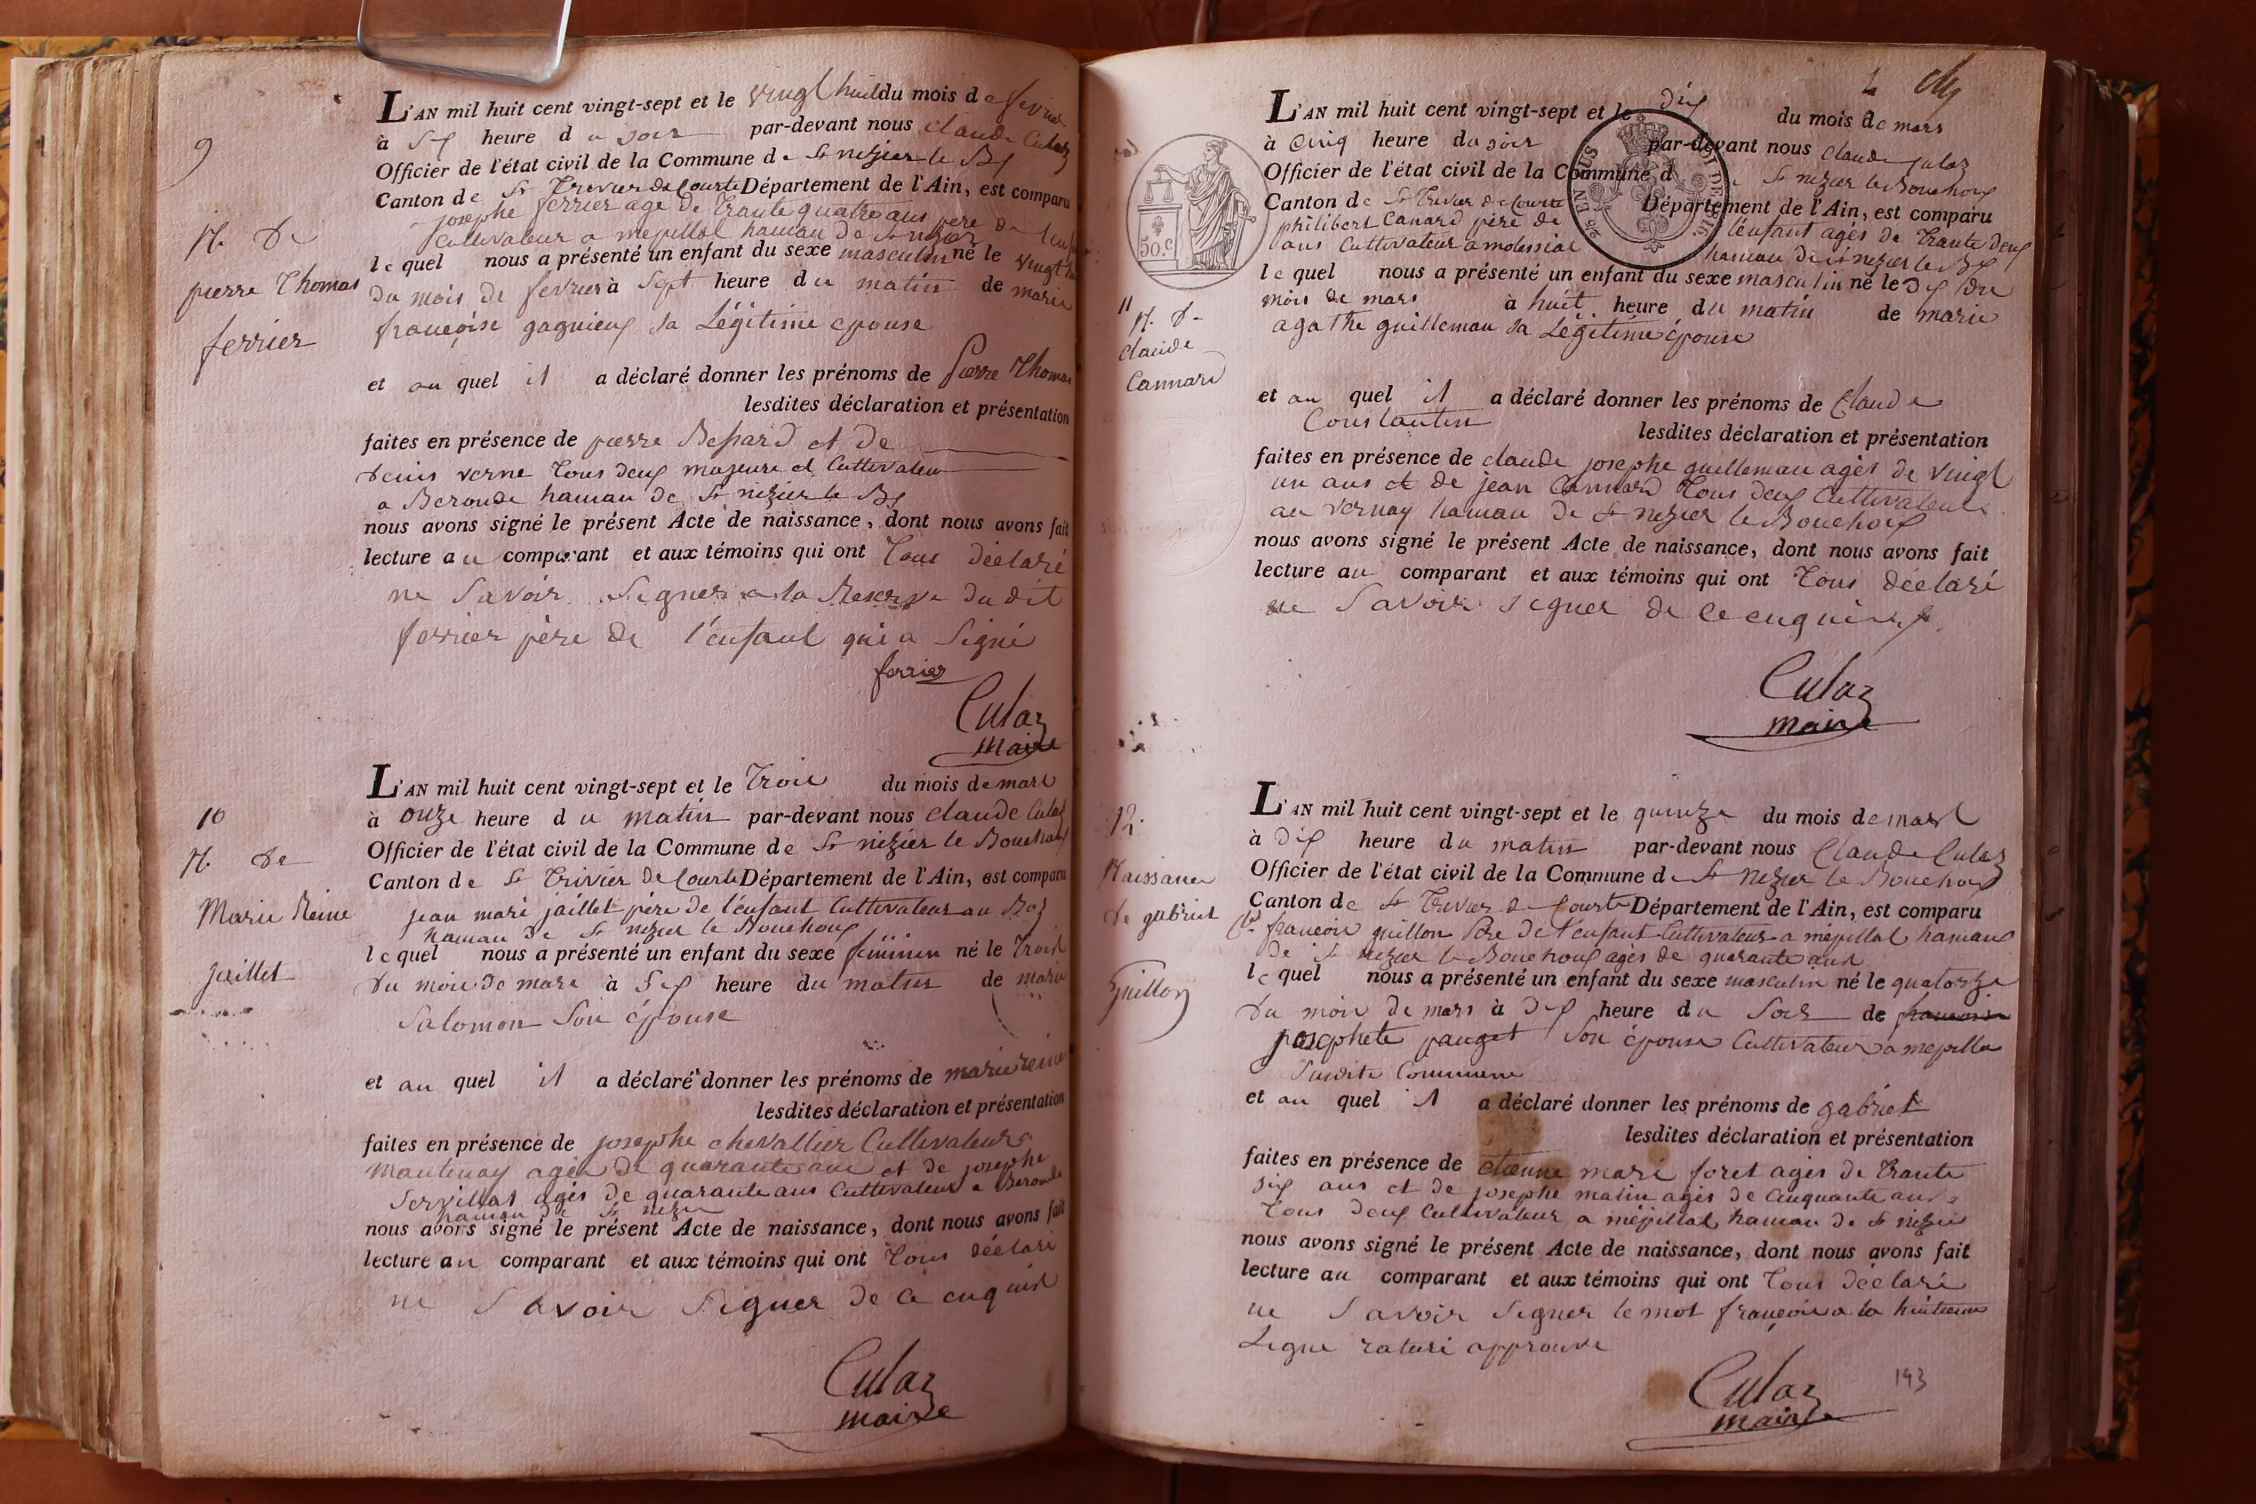 9
N. de
pierre Thomas
ferrier
L'AN mil huit cent vingt-sept et le vingt huit du mois de fevrier
à six heure du soir par-devant nous claude Culaz
Officier de l'état civil de la Commune de St nizier le Bx
Canton de St Trivier de Courte Département de l'Ain, est comparu
josephe ferrier age de trante quatre ans pere de l'enfant
Cultivateur a mepillat hamau de St nizier
lequel nous a présenté un enfant du sexe masculin né le vingt
du mois de fevrier à sept heure du matin de marie
françoise gagnieux sa Légitime epouse
et au quel il a déclaré donner les prénoms de Pierre Thomas
lesdites déclaration et présentation
faites en présence de pierre Bessard et de
denis verne tous deux majeurs et Cultivateur
a Beronde hamau de St nizier le Bx
nous avons signé le présent Acte de naissance, dont nous avons fait
lecture au comparant et aux témoins qui ont tous déclaré
ne Savoir Signer a la Reserve du dit
ferrier père de l'enfant qui a Signé
ferrier
Culaz
Maire
10
N. de
Marie Reine
jaillet
L'AN mil huit cent vingt-sept et le trois du mois de mars
à onze heure du matin par-devant nous claude Culaz
Officier de l'état civil de la Commune de St nizier le Bouchoux
Canton de St Trivier de Courte Département de l'Ain, est comparu
jean marie jaillet père de l'enfant Cultivateur au
hamau de St nizier le Bouchoux
lequel nous a présenté un enfant du sexe féminin né le trois
du mois de mars à Six heure du matin de marie
Salomon Son épouse
et au quel il a déclaré donner les prénoms de marie reine
lesdites déclaration et présentation
faites en présence de josephe chevallier Cultivateur a
mantenay agés de quarante ans et de josephe
Servillat agés de quarante ans Cultivateur a Beronde
hamau de St nizier
nous avons signé le présent Acte de naissance, dont nous avons fait
lecture au comparant et aux témoins qui ont tous déclaré
ne Savoir Signer de ce enquis
Culaz
maire
50.c
11
N. de
claude
Cannard
L'AN mil huit cent vingt-sept et le dix du mois de mars
à cinq heure du soir par-devant nous claude Culaz
Officier de l'état civil de la Commune de St nizier le Bouchoux
Canton de St Trivier de Courte Département de l'Ain, est comparu
philibert Canard père de l'enfant agés de trante deux
ans Cultivateur a molessiat hamau de St nizier le Bx
lequel nous a présenté un enfant du sexe masculin né le dix du
mois de mars à huit heure du matin de marie
agathe guillemau sa Légitime épouse
et au quel il a déclaré donner les prénoms de Claude
Constantin
lesdites déclaration et présentation
faites en présence de claude josephe guillemau agés de vingt
un ans et de jean Cannard tous deux Cultivateur
au vernay hamau de St nizier le Bouchoux
nous avons signé le présent Acte de naissance, dont nous avons fait
lecture au comparant et aux témoins qui ont tous déclaré
ne Savoir signer de ce enquis
Culaz
maire
12
Naissance
de gabriel
Guillon
L'AN mil huit cent vingt-sept et le quinze du mois de mars
à dix heure du matin par-devant nous Claude Culaz
Officier de l'état civil de la Commune de St nizier le Bouchoux
Canton de St Trivier de Courte Département de l'Ain, est comparu
françois guillon Père de l'enfant Cultivateur a mepillat hamau
de St nizier le Bouchoux agés de quarante ans
lequel nous a présenté un enfant du sexe masculin né le quatorze
du mois de mars à dix heure du Soir de francoise
josephete pauget Son épouse Cultivateur a mepillat
Susdite Commune
et au quel il a déclaré donner les prénoms de gabriel
lesdites déclaration et présentation
faites en présence de etienne marie foret agés de trante
six ans et de josephe matin agés de cinquante ans
tous deux Cultivateur a mépillat hamau de St nizier
nous avons signé le présent Acte de naissance, dont nous avons fait
lecture au comparant et aux témoins qui ont tous déclaré
ne Savoir Signer le mot françoise a la huitieme
Ligne raturé approuvé
Culaz
maire
193